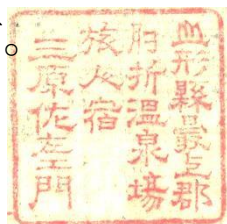 山形縣最上郡
肘折溫泉場
旅人宿
三原佐左エ門